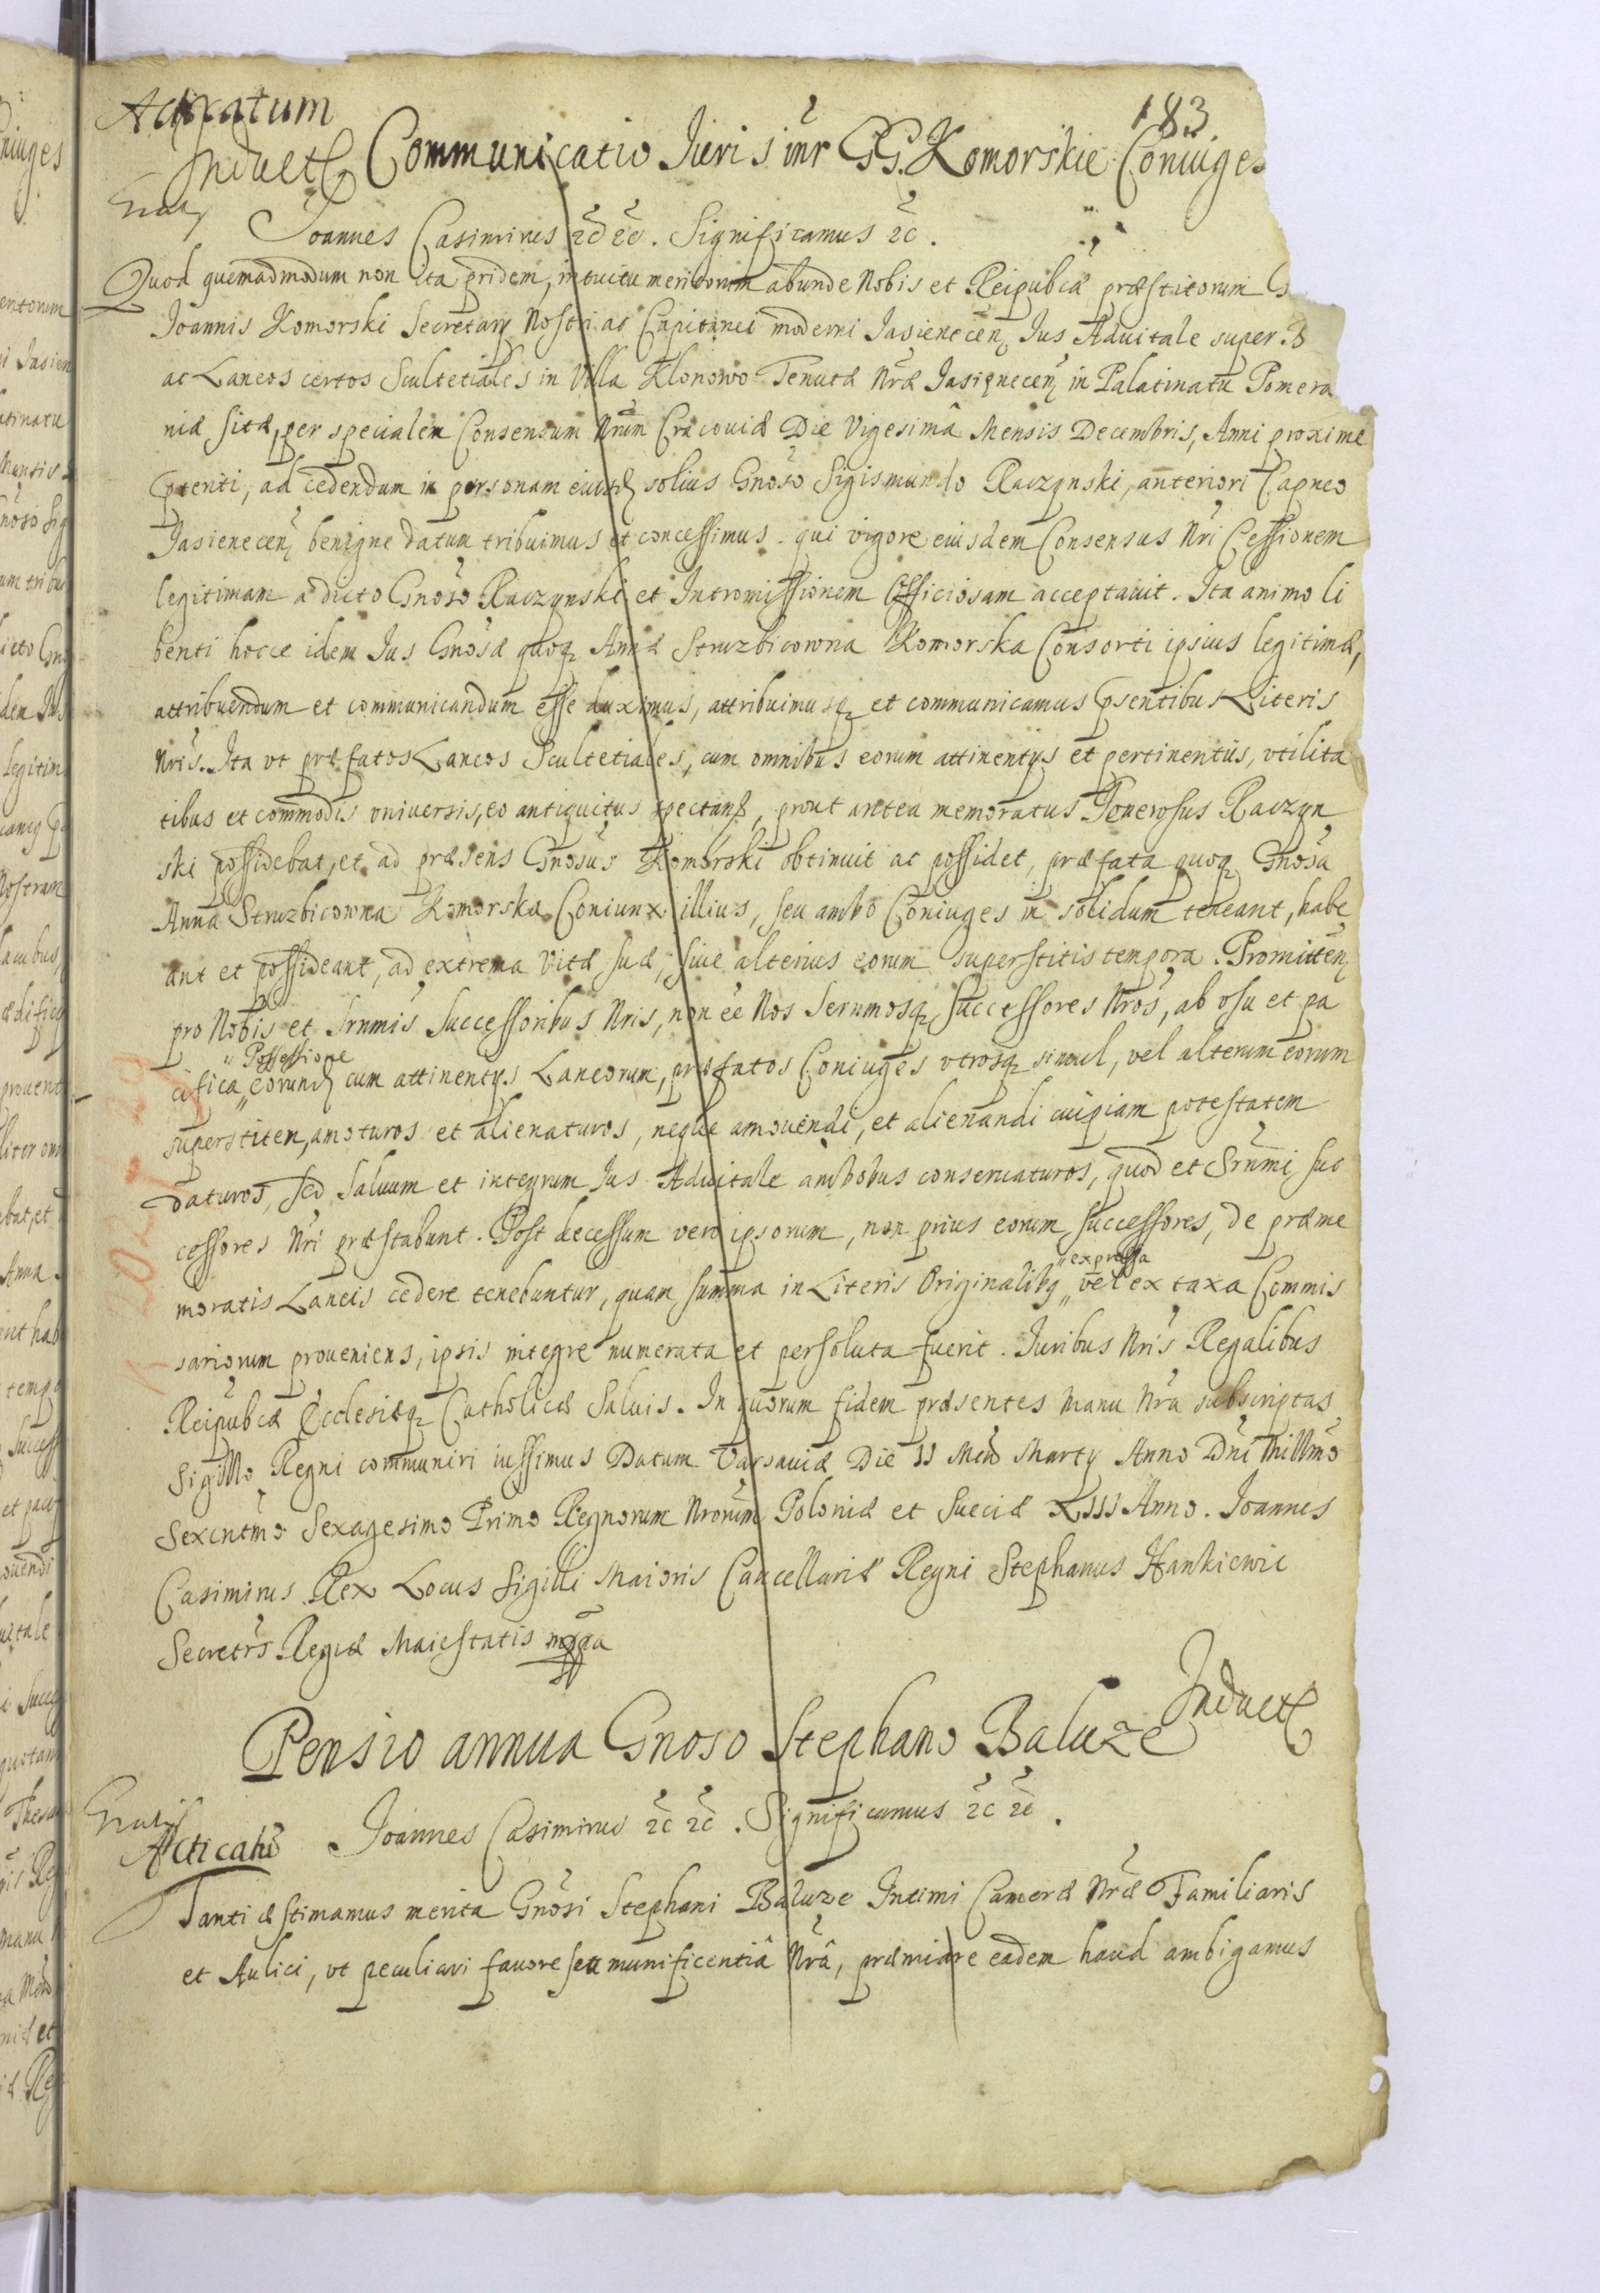 Acticatum
183.
Induct Communicatio Juris intr GG. Komorskie Coniuges
Joannes Casimirus etc etc. Significamus etc.
Quod quemadmodum non ita pridem, intuitu meritorum abunde Nobis et Reipubcæ præstitorum G
Joannis Komorski Secretarij Nostri ac Capitanei moderni Jasienecen Jus Aduitale super
ac Laneos certos Scultetiales in Villa Klonowo Tenutæ Nræ Jasienecen in Palatinatu Pomera
niæ sitæ, per specialem Consensum Nrum Cracouiæ Die Vigesimâ Mensis Decembris, Anni proxime
pteriti, ad cedendum in personam eiusd solius Gnoso Sigismundo Raczynski, anteriori Capneo
Jasienecen benigne datum tribuimus et concessimus. qui vigore eiusdem Consensus Nri Cessionem
legitimam a dicto Gnoso Raczynski et Intromissionem Officiosam acceptauit. Ita animo li
benti hocce idem Jus Gnosæ quoq Annæ Struzbicowna Komorska Consorti ipsius legitimæ,
attribuendum et communicandum esse duximus, attribuimusq et communicamus psentibus Literis
Nris. Ita vt præfatos Laneos Scultetiales, cum omnibus eorum attinentijs et pertinentiis, vtilita
tibus et commodis vniuersis, eo antiquitus spectan, prout antea memoratus Generosus Raczyn
ski possidebat, et ad præsens Gnosus Komorski obtinuit ac possidet, præfata quoq Gnosa
Anna Struzbicowna Komorska Coniunx illius, seu ambo Coniuges in solidum teneant, habe
ant et possideant, ad extrema Vitæ suæ, siue alterius eorum superstitis tempora. Promitten
pro Nobis et Srnmis Successoribus Nris, non ee Nos Sernmosq Successores Nros, ab vsu et pa
" Possessione
cifica " eorund cum attinentijs Laneorum, præfatos Coniuges vtrosq simul, vel alterum eorum
superstitem, amoturos et alienaturos, neque amouendi, et alienandi cuipiam potestatem
daturos, sed Saluum et integrum Jus Aduitale ambobus conseruaturos, quod et Srnmi suc
cessores Nri præstabunt. Post decessum vero ipsorum, non prius eorum successores, de præme
" expressa
moratis Laneis cedere tenebuntur, quam summa in Literis Originalibq " vel ex taxa Commis
sariorum proueniens, ipsis integre numerata et persoluta fuerit. Juribus Nris Regalibus
Reipubcæ Ecclesiæq Catholicæ Saluis. In quorum fidem præsentes Manu Nra subscriptas
Sigillo Regni communiri iussimus Datum Varsauiæ Die 11 Men Martij Anno Dni Millmo
Sexcntmo Sexagesimo Primo Regnorum Nrorum Poloniæ et Sueciæ XIII Anno. Joannes
Casimirus Rex Locus Sigilli Maioris Cancellariæ Regni Stephanus Hankiewic
Secretrs Regiæ Maiestatis mppa
Pensio annua Gnoso Stephano Baluze Induct
Acticatu Joannes Casimirus etc etc. Significamus etc etc.
Tanti æstimamus merita Gnosi Stephani Baluze Intimi Cameræ Nræ Familiaris
et Aulici, vt peculiari fauore seu munificentiâ Nrâ, præmiare eadem haud ambigamus